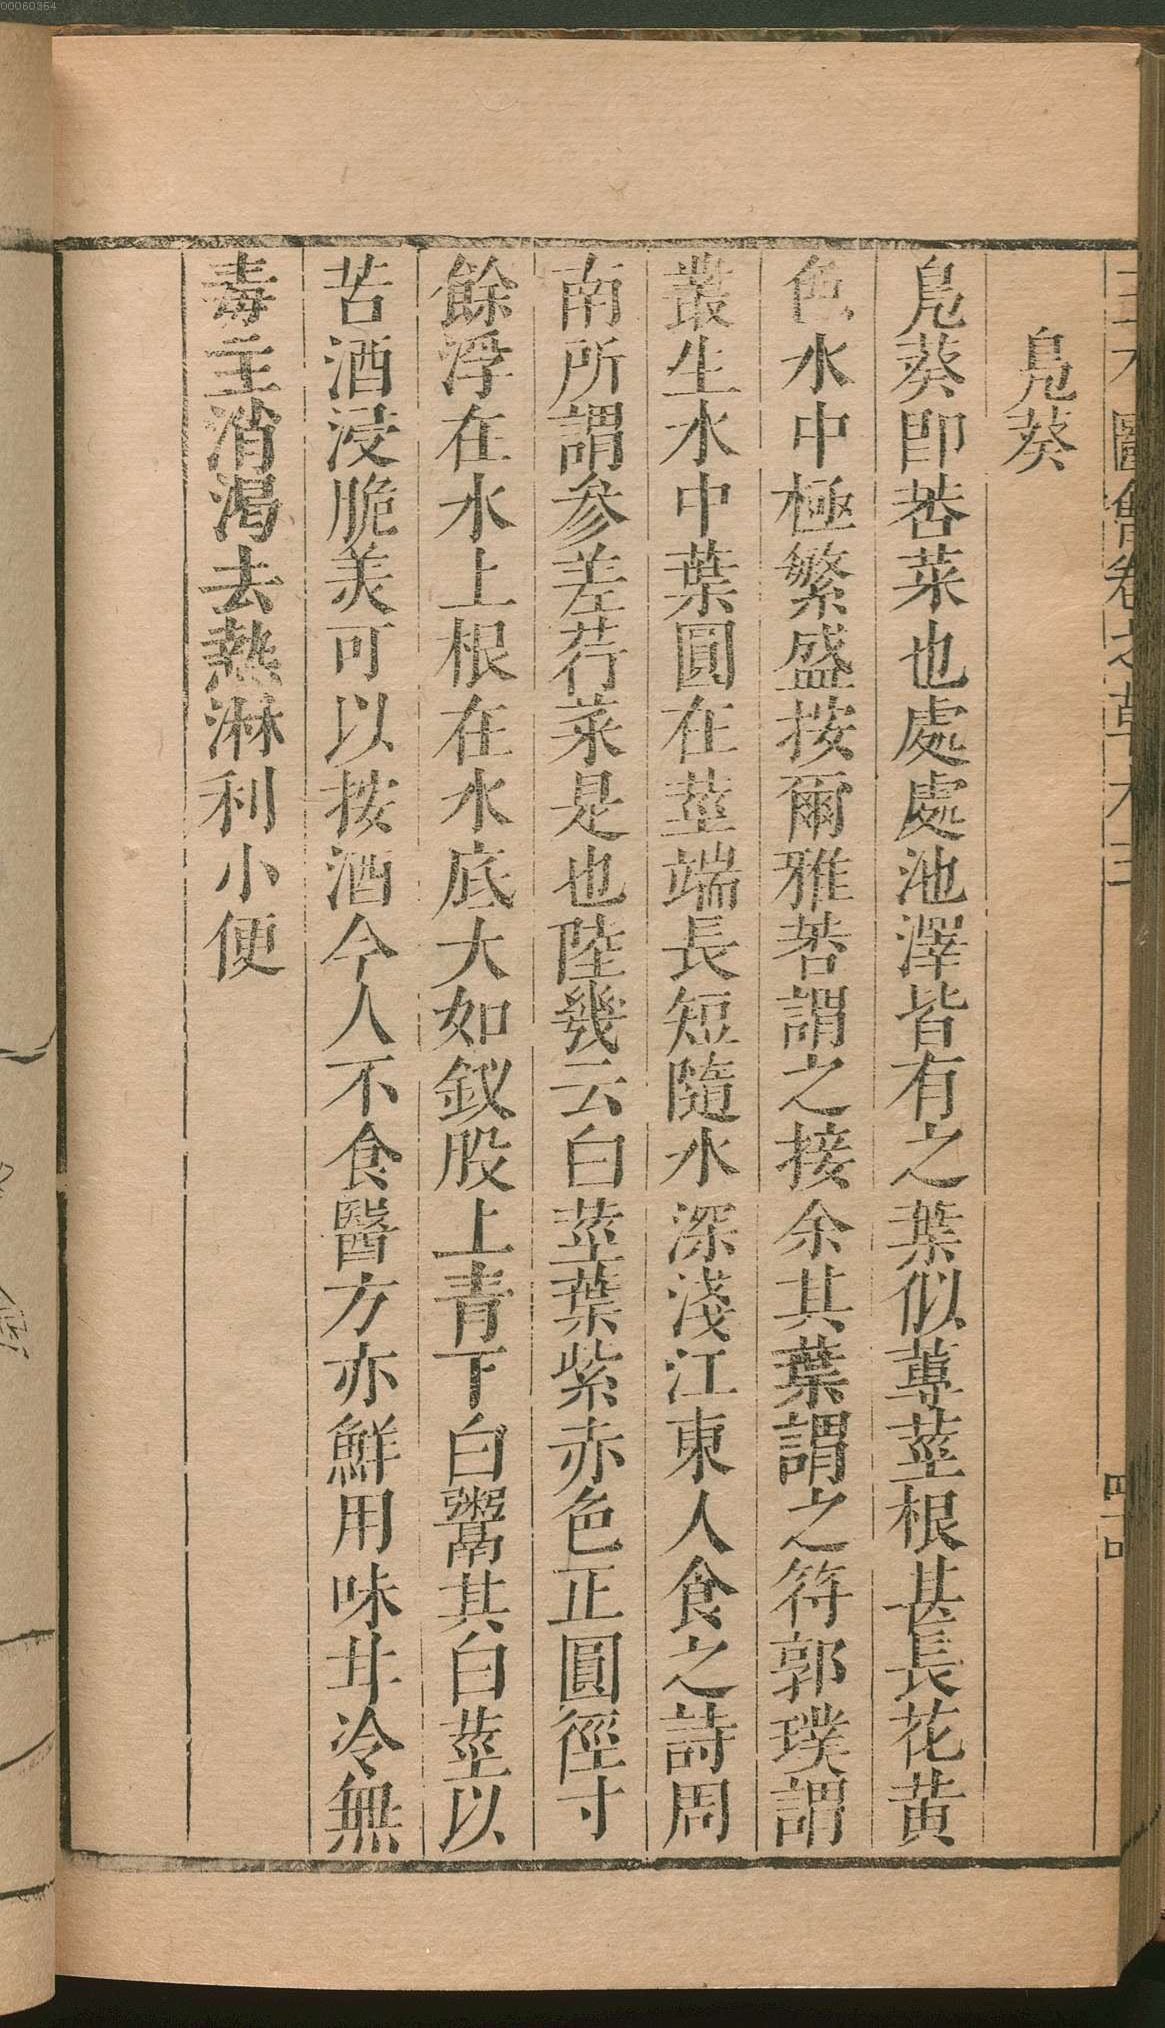 00060354
三才圖會卷之草木三
四百
鳧葵
鳧葵卽莕菜也處處池澤皆有之葉似蓴莖根甚長花黄
色水中極繁盛按爾雅莕謂之接余其葉謂之苻郭璞謂
叢生水中葉圓在莖端長短隨水深淺江東人食之詩周
南所謂參差荇菜是也陸幾云白莖葉紫赤色正圓徑寸
餘浮在水上根在水底大如釵股上青下白鬻其白莖以
苦酒浸脆美可以按酒今人不食醫方亦鮮用味甘冷無
毒主消渴去熱淋利小便